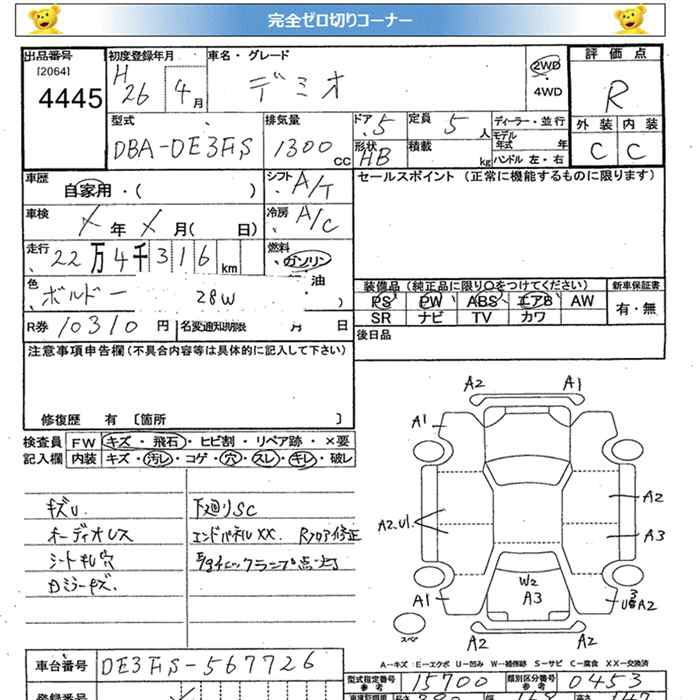 完全ゼロ切りコーナー
出品番号 初度登録年月 車名・グレード 評価点
[2064] H 26 4月 デミオ 2WD R
4445 4WD
型式 排気量 ドア 5 定員 5人 ディーラー・並行 外装 内装
DBA-DE3FS 1300cc 形状 HB 積載 kg モデル年式 年 C C
ハンドル 左・右
車歴 自家用・( ) シフト A/T セールスポイント (正常に機能するものに限ります)
車検 X年X月( 日) 冷房 A/C
走行 22万4千316km 燃料 ガソリン
油
色 ボルドー 28W ) 装備品 (純正品に限り○をつけてください) 新車保証書
PS PW ABS エアB AW 有・無
R券 10310円 名変通知期限 月 日 SR ナビ TV カワ
注意事項申告欄 (不具合内容等は具体的に記入して下さい) 後日品
修復歴 有 [箇所 ]
検査員 FW キズ・飛石・ヒビ割・リペア跡・×要
記入欄 内装 キズ・汚レ・コゲ・穴・スレ・キレ・破レ
キズU 下廻りSC
オーディオレス エンドパネルXX. Rフロア修正
シートキレ穴 E/gチェックランプ点灯
Dミラーキズ.
A2 A1
A1
A2
A2.U1 A3
W2
A3
A1 A2
スペア
A2 A2
A…キズ E…エクボ U…凹み W…補修跡 S…サビ C…腐食 XX…交換済
車台番号 DE3FS-567726 型式指定番号 参考 15700 類別区分番号 参考 0453
登録番号